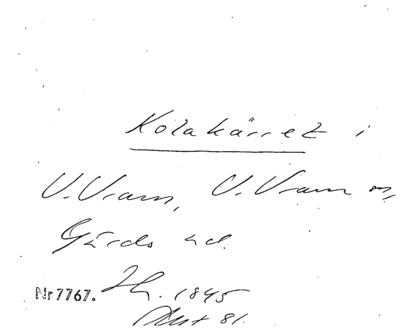 Kolakärret i
V. Vram, V. Vram sn,
Gärds hd.
Nr 7767. Hg. 1845
Avst 81.